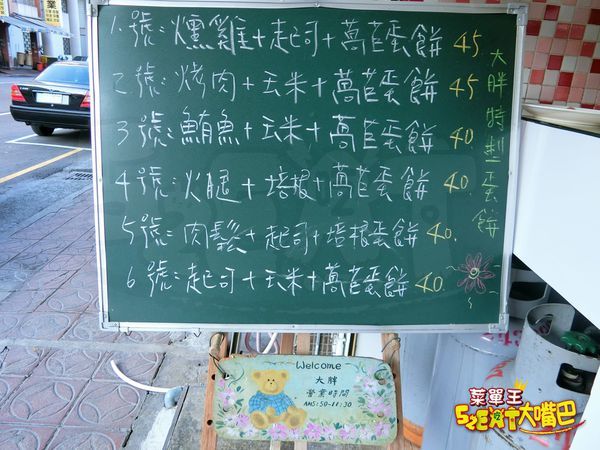 1號:燻雞+起司+萵苣蛋餅 45
2號:烤肉+玉米+萵苣蛋餅 45
3號:鮪魚+玉米+萵苣蛋餅 40.
4號:火腿+培根+萵苣蛋餅 40.
5號:肉鬆+起司+培根蛋餅 40.
6號:起司+玉米+萵苣蛋餅 40.
大胖特製蛋餅
Welcome
大胖
營業時間
AM5:50-11:30
菜單王
SZEAT大嘴巴